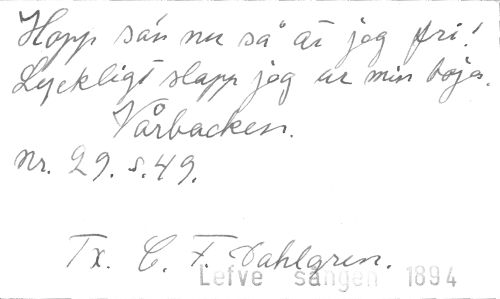 Hopp sán nu så är jag fri!
Lyckligt slapp jag ur min boja.
Vårbacken.
nr. 29. s. 49.
Tx. C. F. Dahlgren.
Lefve sången 1894